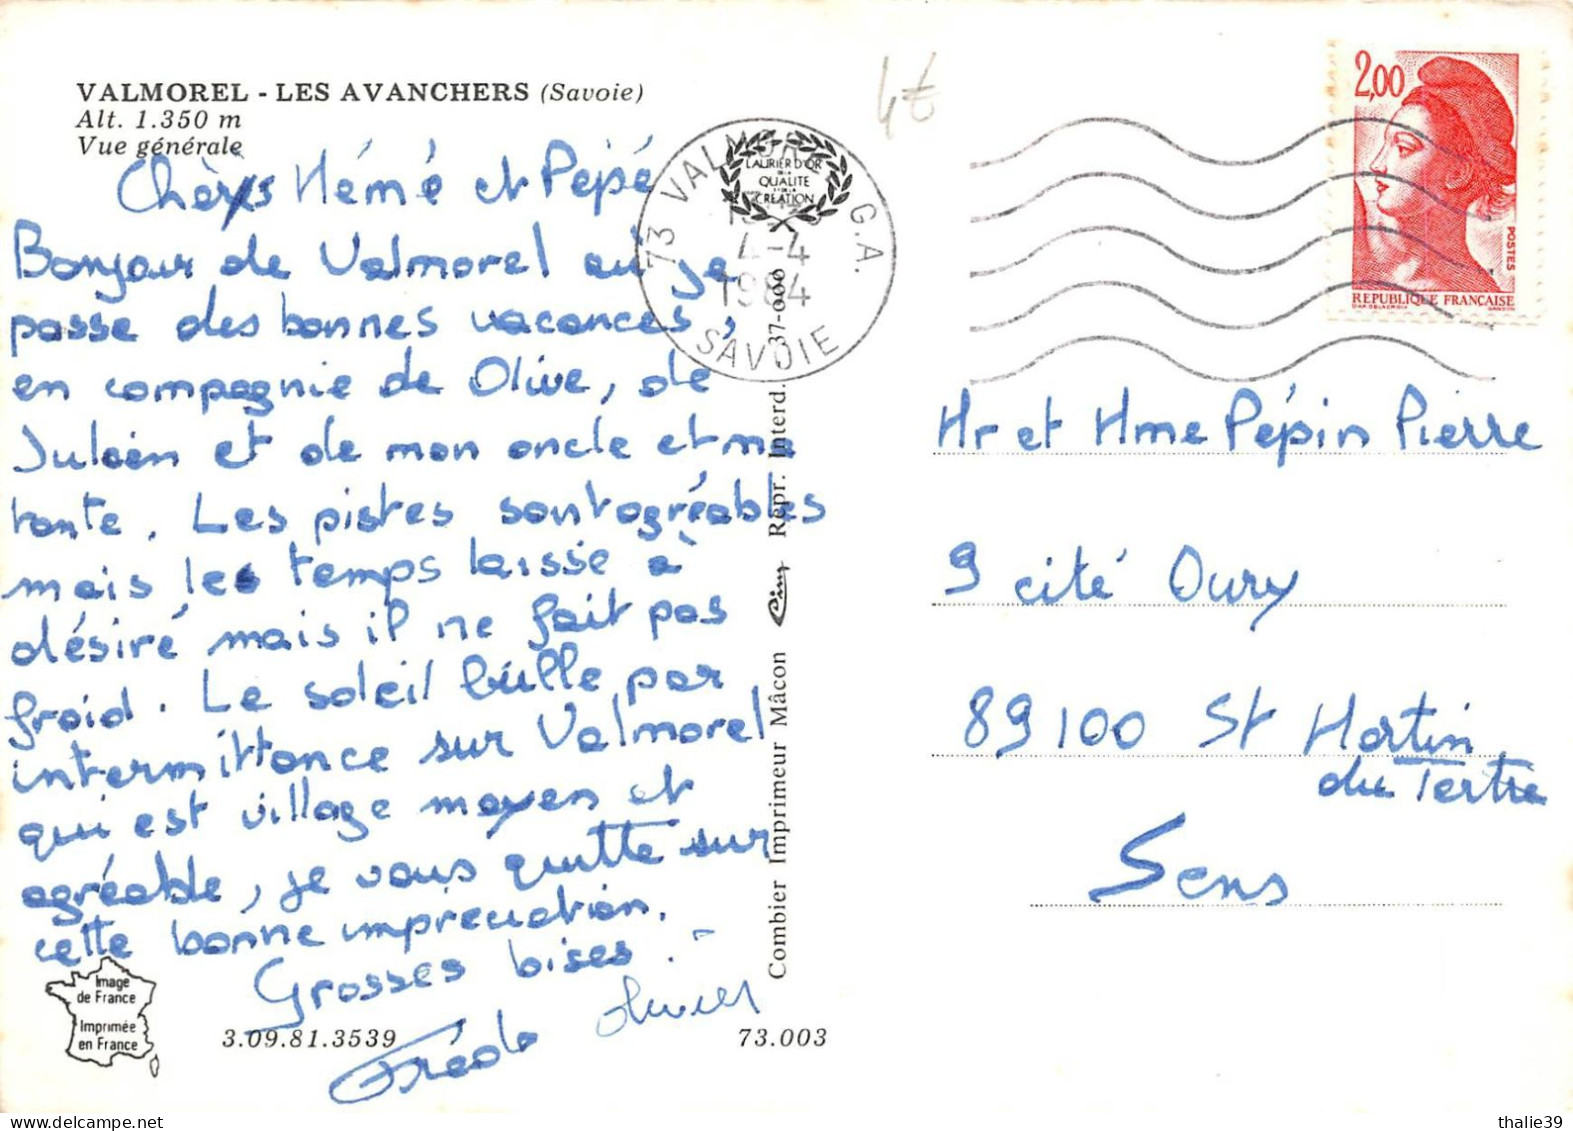 VALMOREL - LES AVANCHERS (Savoie)
Alt. 1.350 m
Vue générale
Chèrs Mémé et Pépé
Bonjour de Valmorel où je
passe des bonnes vacances,
en compagnie de Olive, de
Julien et de mon oncle et ma
tante. Les pistes sont agréables
mais les temps laisse à
désiré mais il ne fait pas
froid. Le soleil brille par
intermittance sur Valmorel
qui est village moyen et
agréable, je vous quitte sur
cette bonne impreciation.
Grosses bises.
Frédo Olivier
Image
de France
Imprimée
en France
3.09.81.3539
73.003
Combier Imprimeur Mâcon Cim Repr. Interd. 37-000
4€
73 VALMOREL G.A.
SAVOIE
4-4
1984
LAURIER D'OR
DE LA
QUALITE
ET DE LA
CREATION
2,00
POSTES
REPUBLIQUE FRANÇAISE
D'AP. DELACROIX GANDON
Mr et Mme Pépin Pierre
9 cité Oury
89100 St Martin
du Tertre
Sens
thalie39